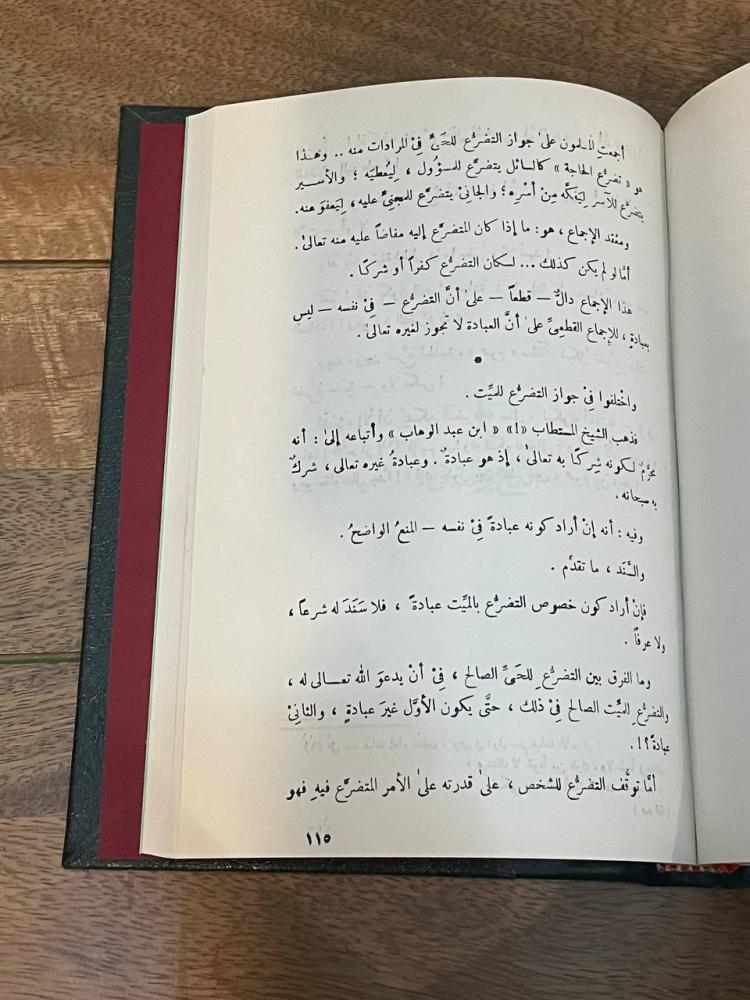 أجمعت المسلمون على جواز التضرُّع للحَيِّ فِيْ المرادات منه .. وهذا
هو « تضرُّع الحاجة » كالسائل يتضرَّع للمسؤول ، لِيُعطيَه ؛ والأسير
يتضرَّع للآسرِ لِيَفكَّه مِنْ أسْرِه ؛ والجانِيْ يتضرَّع للمجنِيِّ عليه ، لِيَعفوَ عنه .
ومعْقد الإجماع ، هو : ما إذا كان المتضرَّع إليه مفاضاً عليه منه تعالىٰ .
أمَّا لو لم يكن كذلك ... لكان التضرُّع كفراً أو شركاً .
هذا الإجماع دالٌّ — قطعاً — علىٰ أنَّ التضرُّع — فِيْ نفسه — ليس
بعبادةٍ ، للإجماع القطعِيِّ علىٰ أنَّ العبادة لا تجوز لغيره تعالىٰ .
•
واختلفوا فِيْ جواز التضرُّع للميِّت .
فذهب الشيخ المستطاب «!» « ابن عبد الوهاب » وأتباعه إلىٰ : أنه
محرَّمٌ لكونه شِركاً به تعالىٰ ، إذ هو عبادةٌ . وعبادةُ غيره تعالى ، شركٌ
به سبحانه .
وفيه : أنه إنْ أراد كونه عبادةً فِيْ نفسه — المنعُ الواضحُ .
والسَّنَد ، ما تقدَّم .
فإنْ أراد كون خصوص التضرُّع بالميِّت عبادةً ، فلا سَنَدَ له شرعاً ،
ولا عرفاً .
وما الفرق بين التضرُّعِ للحَيِّ الصالح ، فِيْ أنْ يدعوَ الله تعالى له ،
والتضرُّعِ للميِّت الصالح فِيْ ذلك ، حتَّى يكون الأوَّل غيرَ عبادةٍ ، والثانِيْ
عبادةً ؟! .
أمَّا توقُّف التضرُّع للشخص ، علىٰ قدرته علىٰ الأمر المتضرَّع فيهِ فهو
١١٥